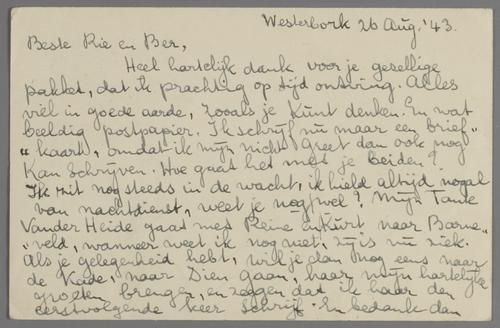 Westerbork 26 Aug. '43.
Beste Rie en Ber,
Heel hartelijk dank voor je gezellige
pakket, dat ik prachtig op tijd ontving. Alles
viel in goede aarde, zooals je kunt denken. En wat
beeldig postpapier. Ik schrijf nu maar een brief„
„kaart, omdat ik mijn nicht Greet dan ook nog
kan schrijven. Hoe gaat het met je beiden?
Ik zit nog steeds in de wacht, ik hield altijd nogal
van nachtdienst, weet je nog wel? Mijn Tante
Van der Heide gaat met Reine en Kurt naar Barne„
„veld, wanneer weet ik nog niet, zij is nu ziek.
Als je gelegenheid hebt, wil je dan nog eens naar
de Kade, naar Dien gaan, haar mijn hartelijke
groeten brengen, en zeggen dat ik haar den
eerstvolgende keer schrijf. En bedank dan